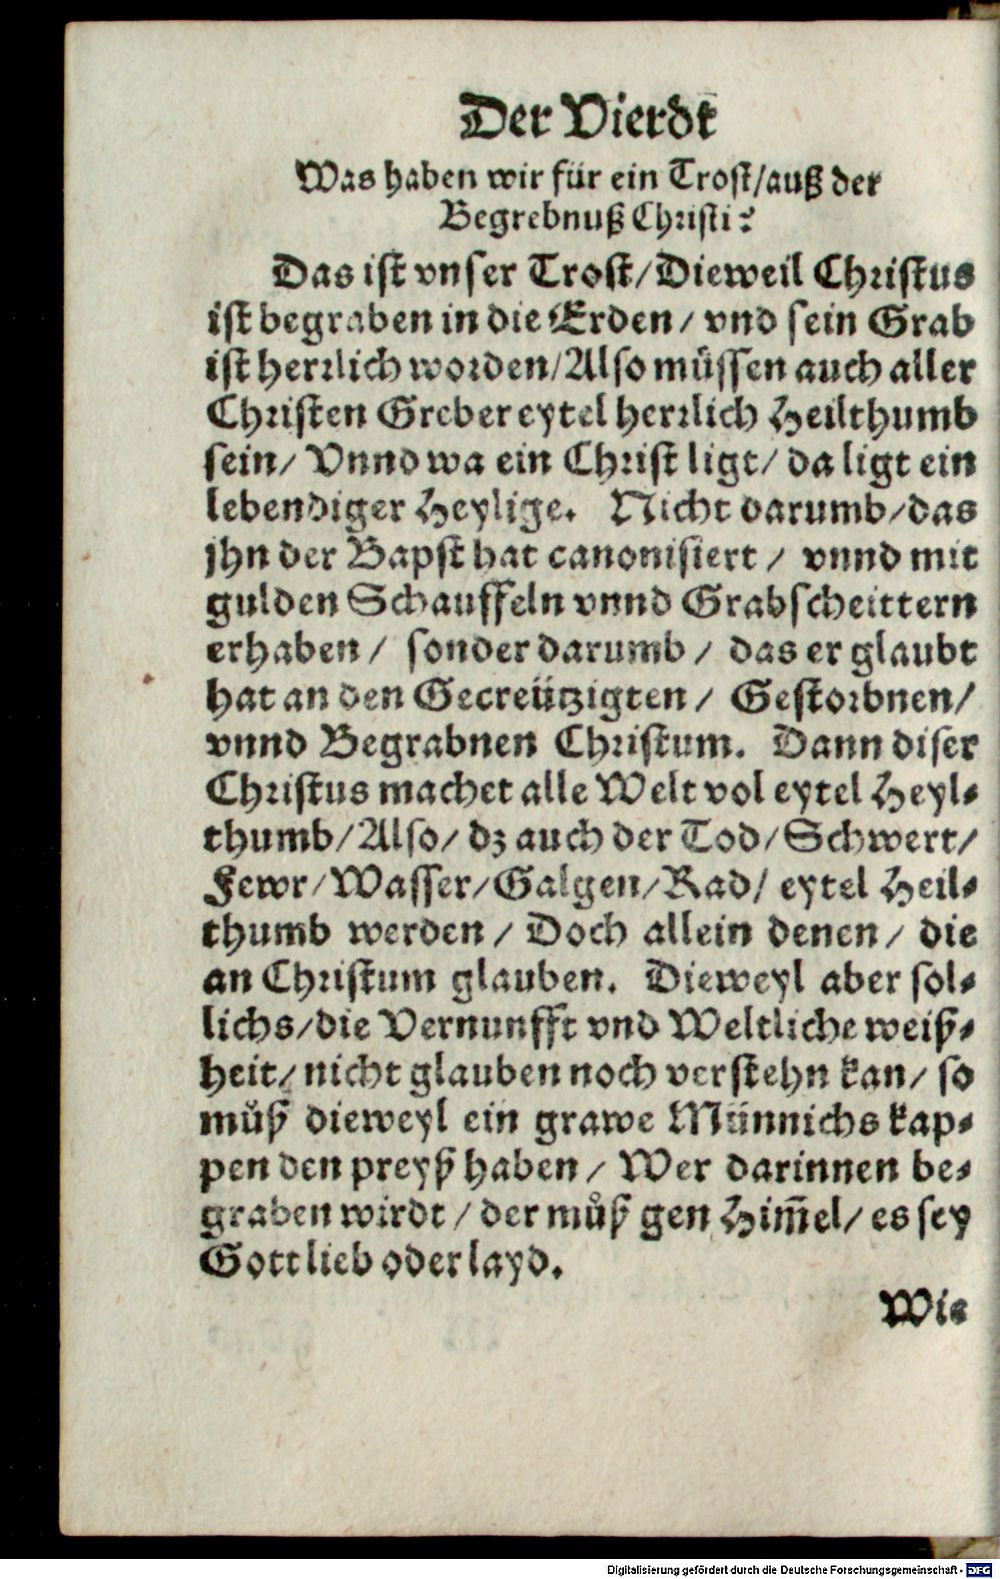 Der Vierdt
Was haben wir für ein Trost/auß der
Begrebnuß Christi?
Das ist vnser Trost/Dieweil Christus
ist begraben in die Erden/ vnd sein Grab
ist herrlich worden/Also müssen auch aller
Christen Greber eytel herrlich Heilthumb
sein/ Vnnd wa ein Christ ligt/ da ligt ein
lebendiger Heylige. Nicht darumb/das
jhn der Bapst hat canonisiert / vnnd mit
gulden Schauffeln vnnd Grabscheittern
erhaben / sonder darumb / das er glaubt
hat an den Gecreützigten / Gestorbnen/
vnnd Begrabnen Christum. Dann diser
Christus machet alle Welt vol eytel Heyl-
thumb/Also/ dz auch der Tod/Schwert/
Fewr/Wasser/Galgen/Rad/ eytel Heil-
thumb werden / Doch allein denen / die
an Christum glauben. Dieweyl aber sol-
lichs/die Vernunfft vnd Weltliche weiß-
heit/ nicht glauben noch verstehn kan/ so
můß dieweyl ein grawe Münnichs kap-
pen den preyß haben / Wer darinnen be-
graben wirdt / der můß gen Him̃el/ es sey
Gott lieb oder layd.
Wie
Digitalisierung gefördert durch die Deutsche Forschungsgemeinschaft - DFG